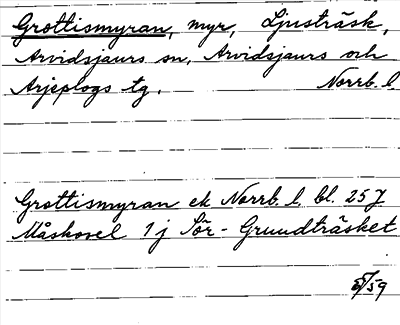 Grottismyran, myr, Ljusträsk,
Arvidsjaurs sn, Arvidsjaurs och
Arjeplogs tg. Norrb. l
Grottismyran ek Norrb. l. bl. 25 J
Måskosel 1 j Sör-Grundträsket
5/59